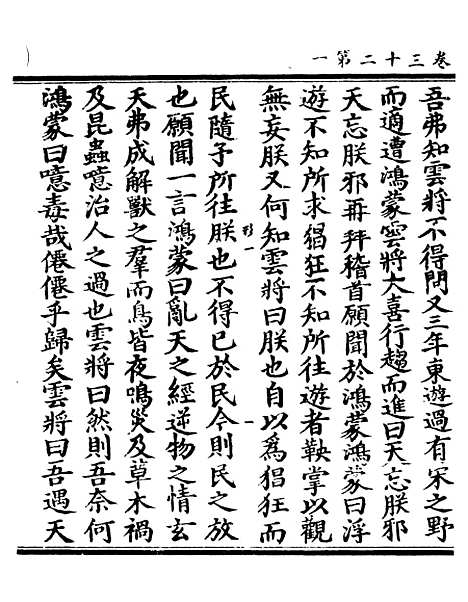 卷三十二第一
吾弗知雲將不得問又三年東遊過有宋之野
而適遭鴻蒙雲將大喜行趨而進曰天忘朕邪
天忘朕邪再拜稽首願聞於鴻蒙鴻蒙曰浮
遊不知所求猖狂不知所往遊者鞅掌以觀
無妄朕又何知雲將曰朕也自以爲猖狂而
民隨子所往朕也不得已於民今則民之放
也願聞一言鴻蒙曰亂天之經逆物之情玄
天弗成解獸之羣而鳥皆夜鳴災及草木禍
及昆蟲噫治人之過也雲將曰然則吾奈何
鴻蒙曰噫毒哉僊僊乎歸矣雲將曰吾遇天